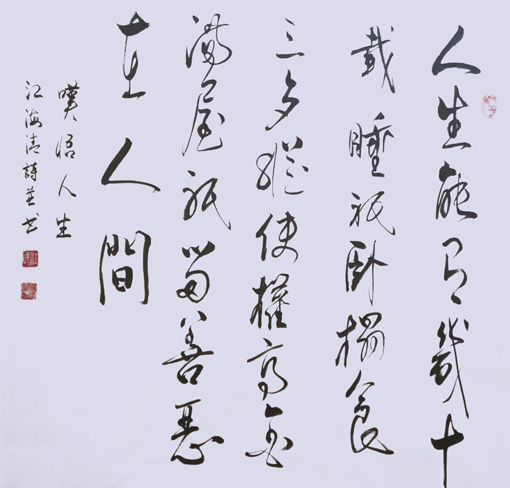 人生能有幾十
載睡祇卧榻食
三歺縱使權高金
滿屋祇留善惡
在人間
嘆悟人生
江海清詩并书